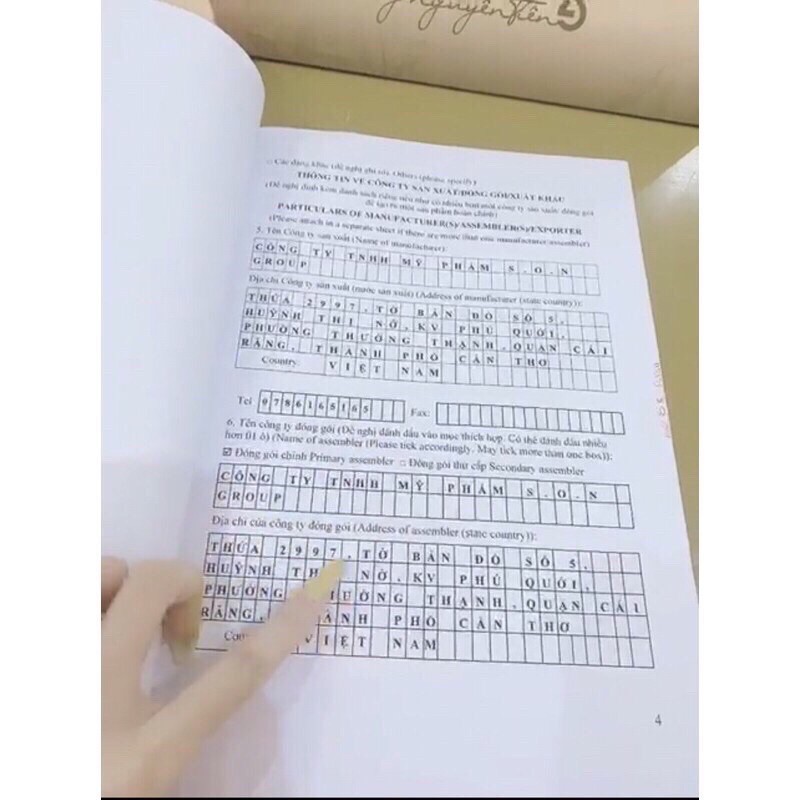 NguyênTiên
- Các dạng khác (đề nghị ghi rõ) Others (please specify)
THÔNG TIN VỀ CÔNG TY SẢN XUẤT/ĐÓNG GÓI/XUẤT KHẨU
(Đề nghị đính kèm danh sách riêng nếu như có nhiều hơn một công ty sản xuất/ đóng gói
để tạo ra một sản phẩm hoàn chỉnh)
PARTICULARS OF MANUFACTURER(S)/ASSEMBLER(S)/EXPORTER
(Please attach in a separate sheet if there are more than one manufacturer/assembler)
5. Tên Công ty sản xuất (Name of manufacturer):
CÔNG TY TNHH MỸ PHẨM S.O.N
GROUP
Địa chỉ Công ty sản xuất (nước sản xuất) (Address of manufacturer (state country)):
THỬA 2997, TỜ BẢN ĐỒ SỐ 5,
HUỲNH THỊ NỞ, KV PHÚ QUỚI,
PHƯỜNG THƯỜNG THẠNH, QUẬN CÁI
RĂNG, THÀNH PHỐ CẦN THƠ
Country: VIỆT NAM
Tel 0786165165 Fax:
6. Tên công ty đóng gói (Đề nghị đánh dấu vào mục thích hợp. Có thể đánh dấu nhiều
hơn 01 ô) (Name of assembler (Please tick accordingly. May tick more than one box)):
☑ Đóng gói chính Primary assembler □ Đóng gói thứ cấp Secondary assembler
CÔNG TY TNHH MỸ PHẨM S.O.N
GROUP
Địa chỉ của công ty đóng gói (Address of assembler (state country)):
THỬA 2997, TỜ BẢN ĐỒ SỐ 5,
HUỲNH TH NỞ, KV PHÚ QUỚI,
PHƯỜNG ƯỜNG THẠNH, QUẬN CÁI
RĂNG, ÀNH PHỐ CẦN THƠ
Cou VIỆT NAM
4